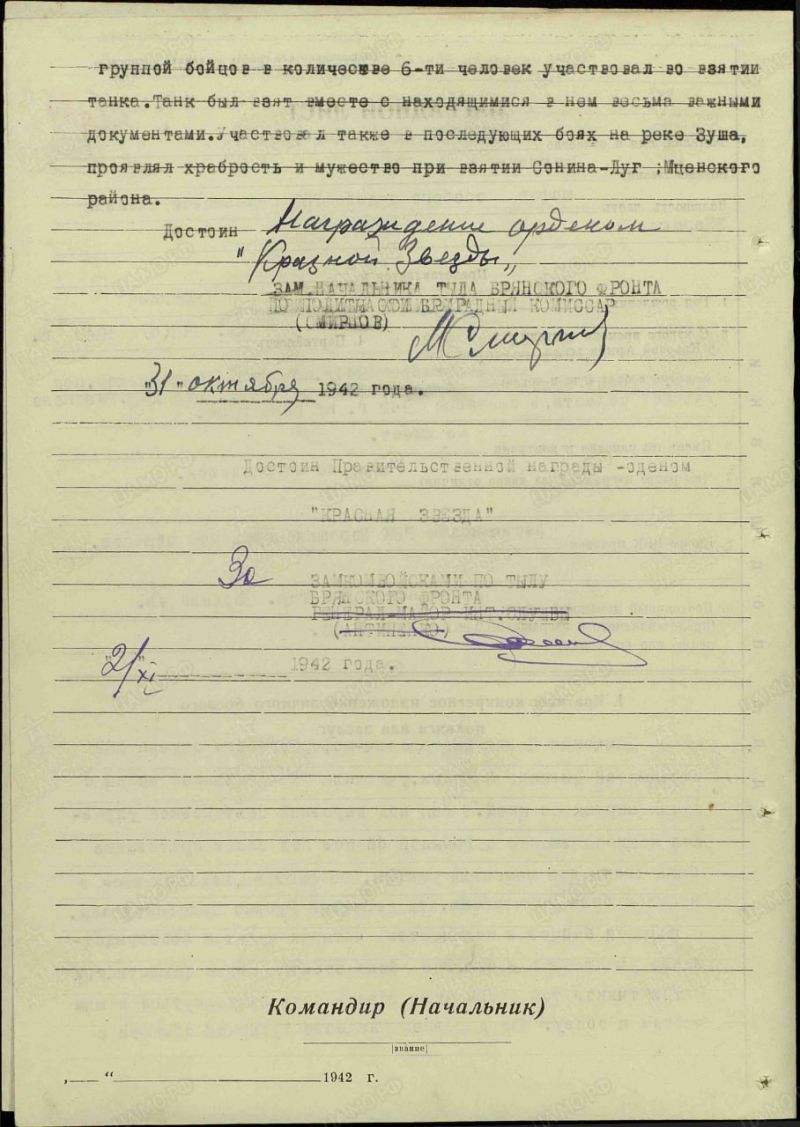 группой бойцов в количестве 6-ти человек участвовал во взятии
танка.Танк был взят вместе с находящимися в нем весьма важными
документами.Участвовал также в последующих боях на реке Зуша,
проявлял храбрость и мужество при взятии Сонина-Луг ;Мценского
района.
Достоин Награждение орденом
"Красной Звезды"
ЗАМ.НАЧАЛЬНИКА ТЫЛА БРЯНСКОГО ФРОНТА
ПО ПОЛИТЧАСТИ БРИГАДНЫЙ КОМИССАР
(СМИРНОВ)
МСмирнов
"31" октября 1942 года.
Достоин Правительственной награды -оденом
"КРАСНАЯ ЗВЕЗДА"
За ЗАМКОМВОЙСКАМИ ПО ТЫЛУ
БРЯНСКОГО ФРОНТА
ГЕНЕРАЛ-МАЙОР ИНТ.СЛУЖБЫ
2/XI 1942 года.
Командир (Начальник)
[звание]
„ “ 1942 г.